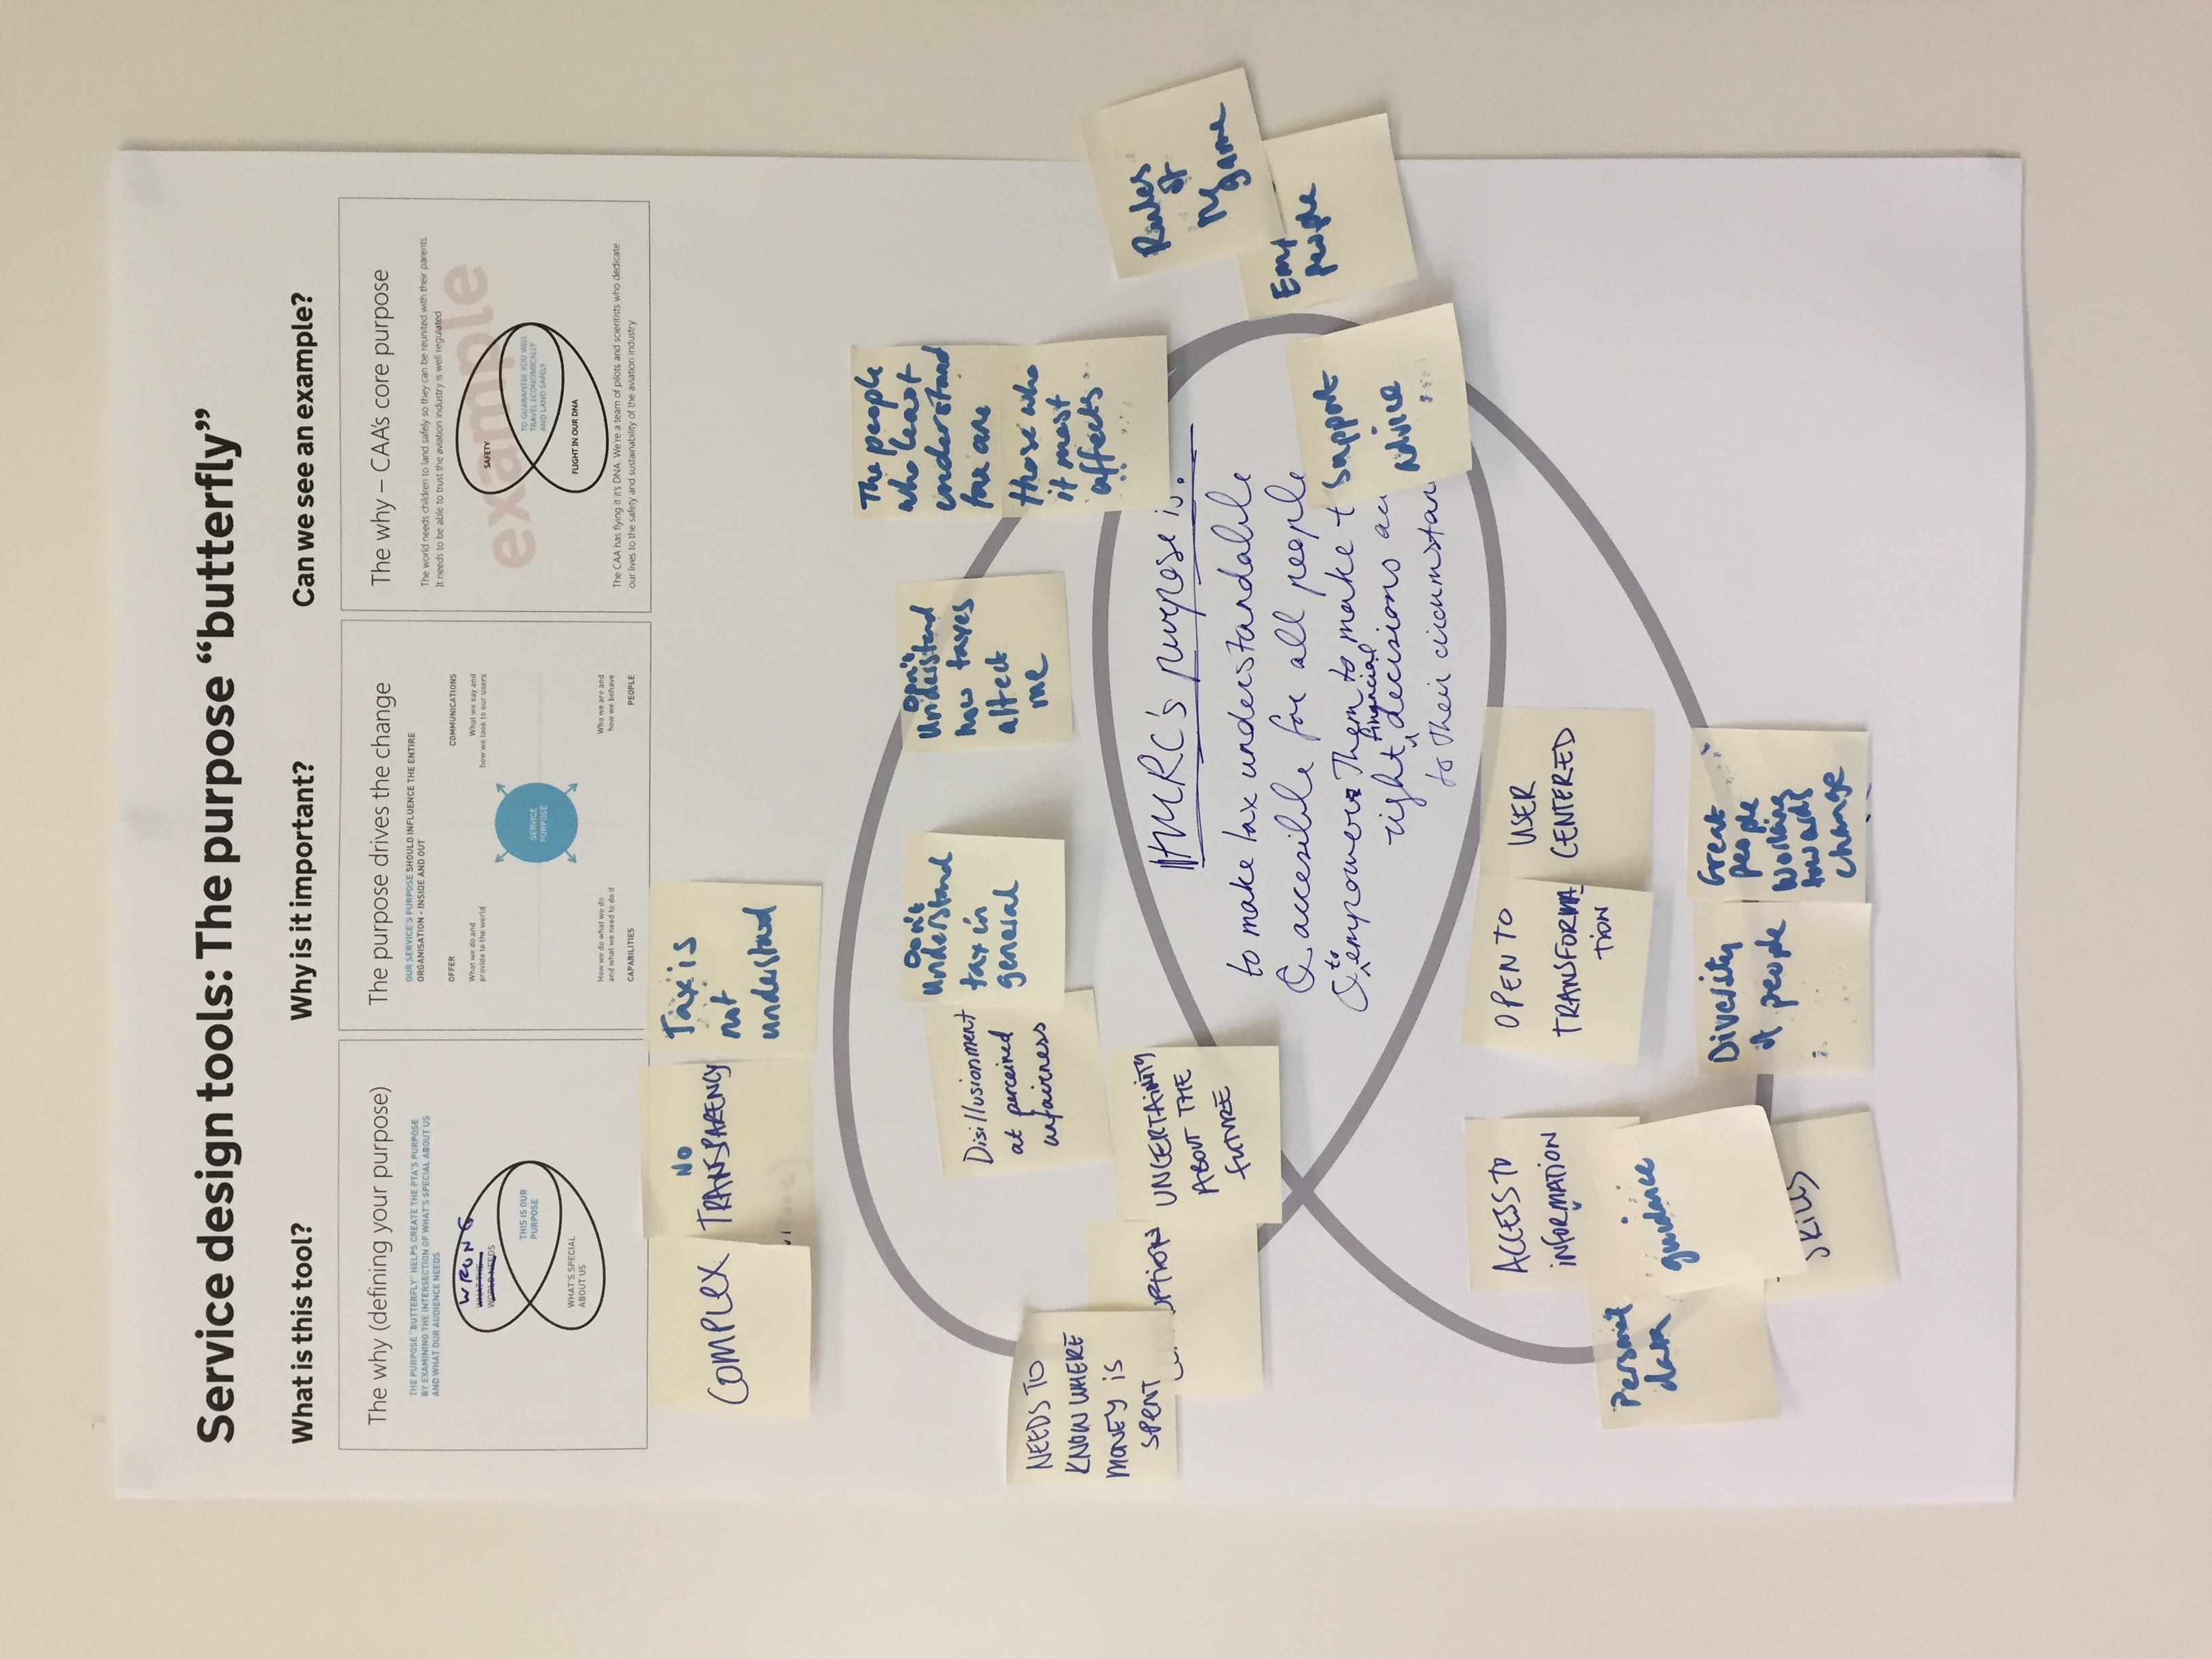 Service design tools: The purpose “butterfly”
What is this tool?
The why (defining your purpose)
THE PURPOSE "BUTTERFLY" HELPS CREATE THE PTA'S PURPOSE
BY EXAMINING THE INTERSECTION OF WHAT'S SPECIAL ABOUT US
AND WHAT OUR AUDIENCE NEEDS
WRONG
WHAT THE
WORLD NEEDS
THIS IS OUR
PURPOSE
WHAT'S SPECIAL
ABOUT US
Why is it important?
The purpose drives the change
OUR SERVICE'S PURPOSE SHOULD INFLUENCE THE ENTIRE
ORGANISATION - INSIDE AND OUT
OFFER
What we do and
provide to the world
COMMUNICATIONS
What we say and
how we look to our users
SERVICE
PURPOSE
How we do what we do
and what we need to do it
CAPABILITIES
Who we are and
how we behave
PEOPLE
Can we see an example?
The why – CAA's core purpose
The world needs children to land safely so they can be reunited with their parents
It needs to be able to trust the aviation industry is well regulated
example
SAFETY
TO GUARANTEE YOU WILL
TRAVEL ECONOMICALLY
AND LAND SAFELY
FLIGHT IN OUR DNA
The CAA has flying it it's DNA. We're a team of pilots and scientists who dedicate
our lives to the safety and sustainability of the aviation industry
COMPLEX
NO
TRANSPARENCY
Tax is
not
understood
Disillusionment
at perceived
unfairness
Don't
understand
tax in
general
Don't
understand
how taxes
affect
me
The people
who least
understand
tax are
those who
it most
affects
NEEDS TO
KNOW WHERE
MONEY IS
SPENT
UNCERTAINITY
ABOUT THE
FUTURE
HMRC's purpose is.
to make tax understandable
& accesible for all people
& to empower them to make t
right financial decisions
to their circumstan
Rules
of
game
people
Support
advice
ACCESS TO
INFORMATION
Personal
data
guidance
SKILLS
OPEN TO
TRANSFORMA-
TION
USER
CENTERED
Diversity
of people
Great
people
working
towards
change